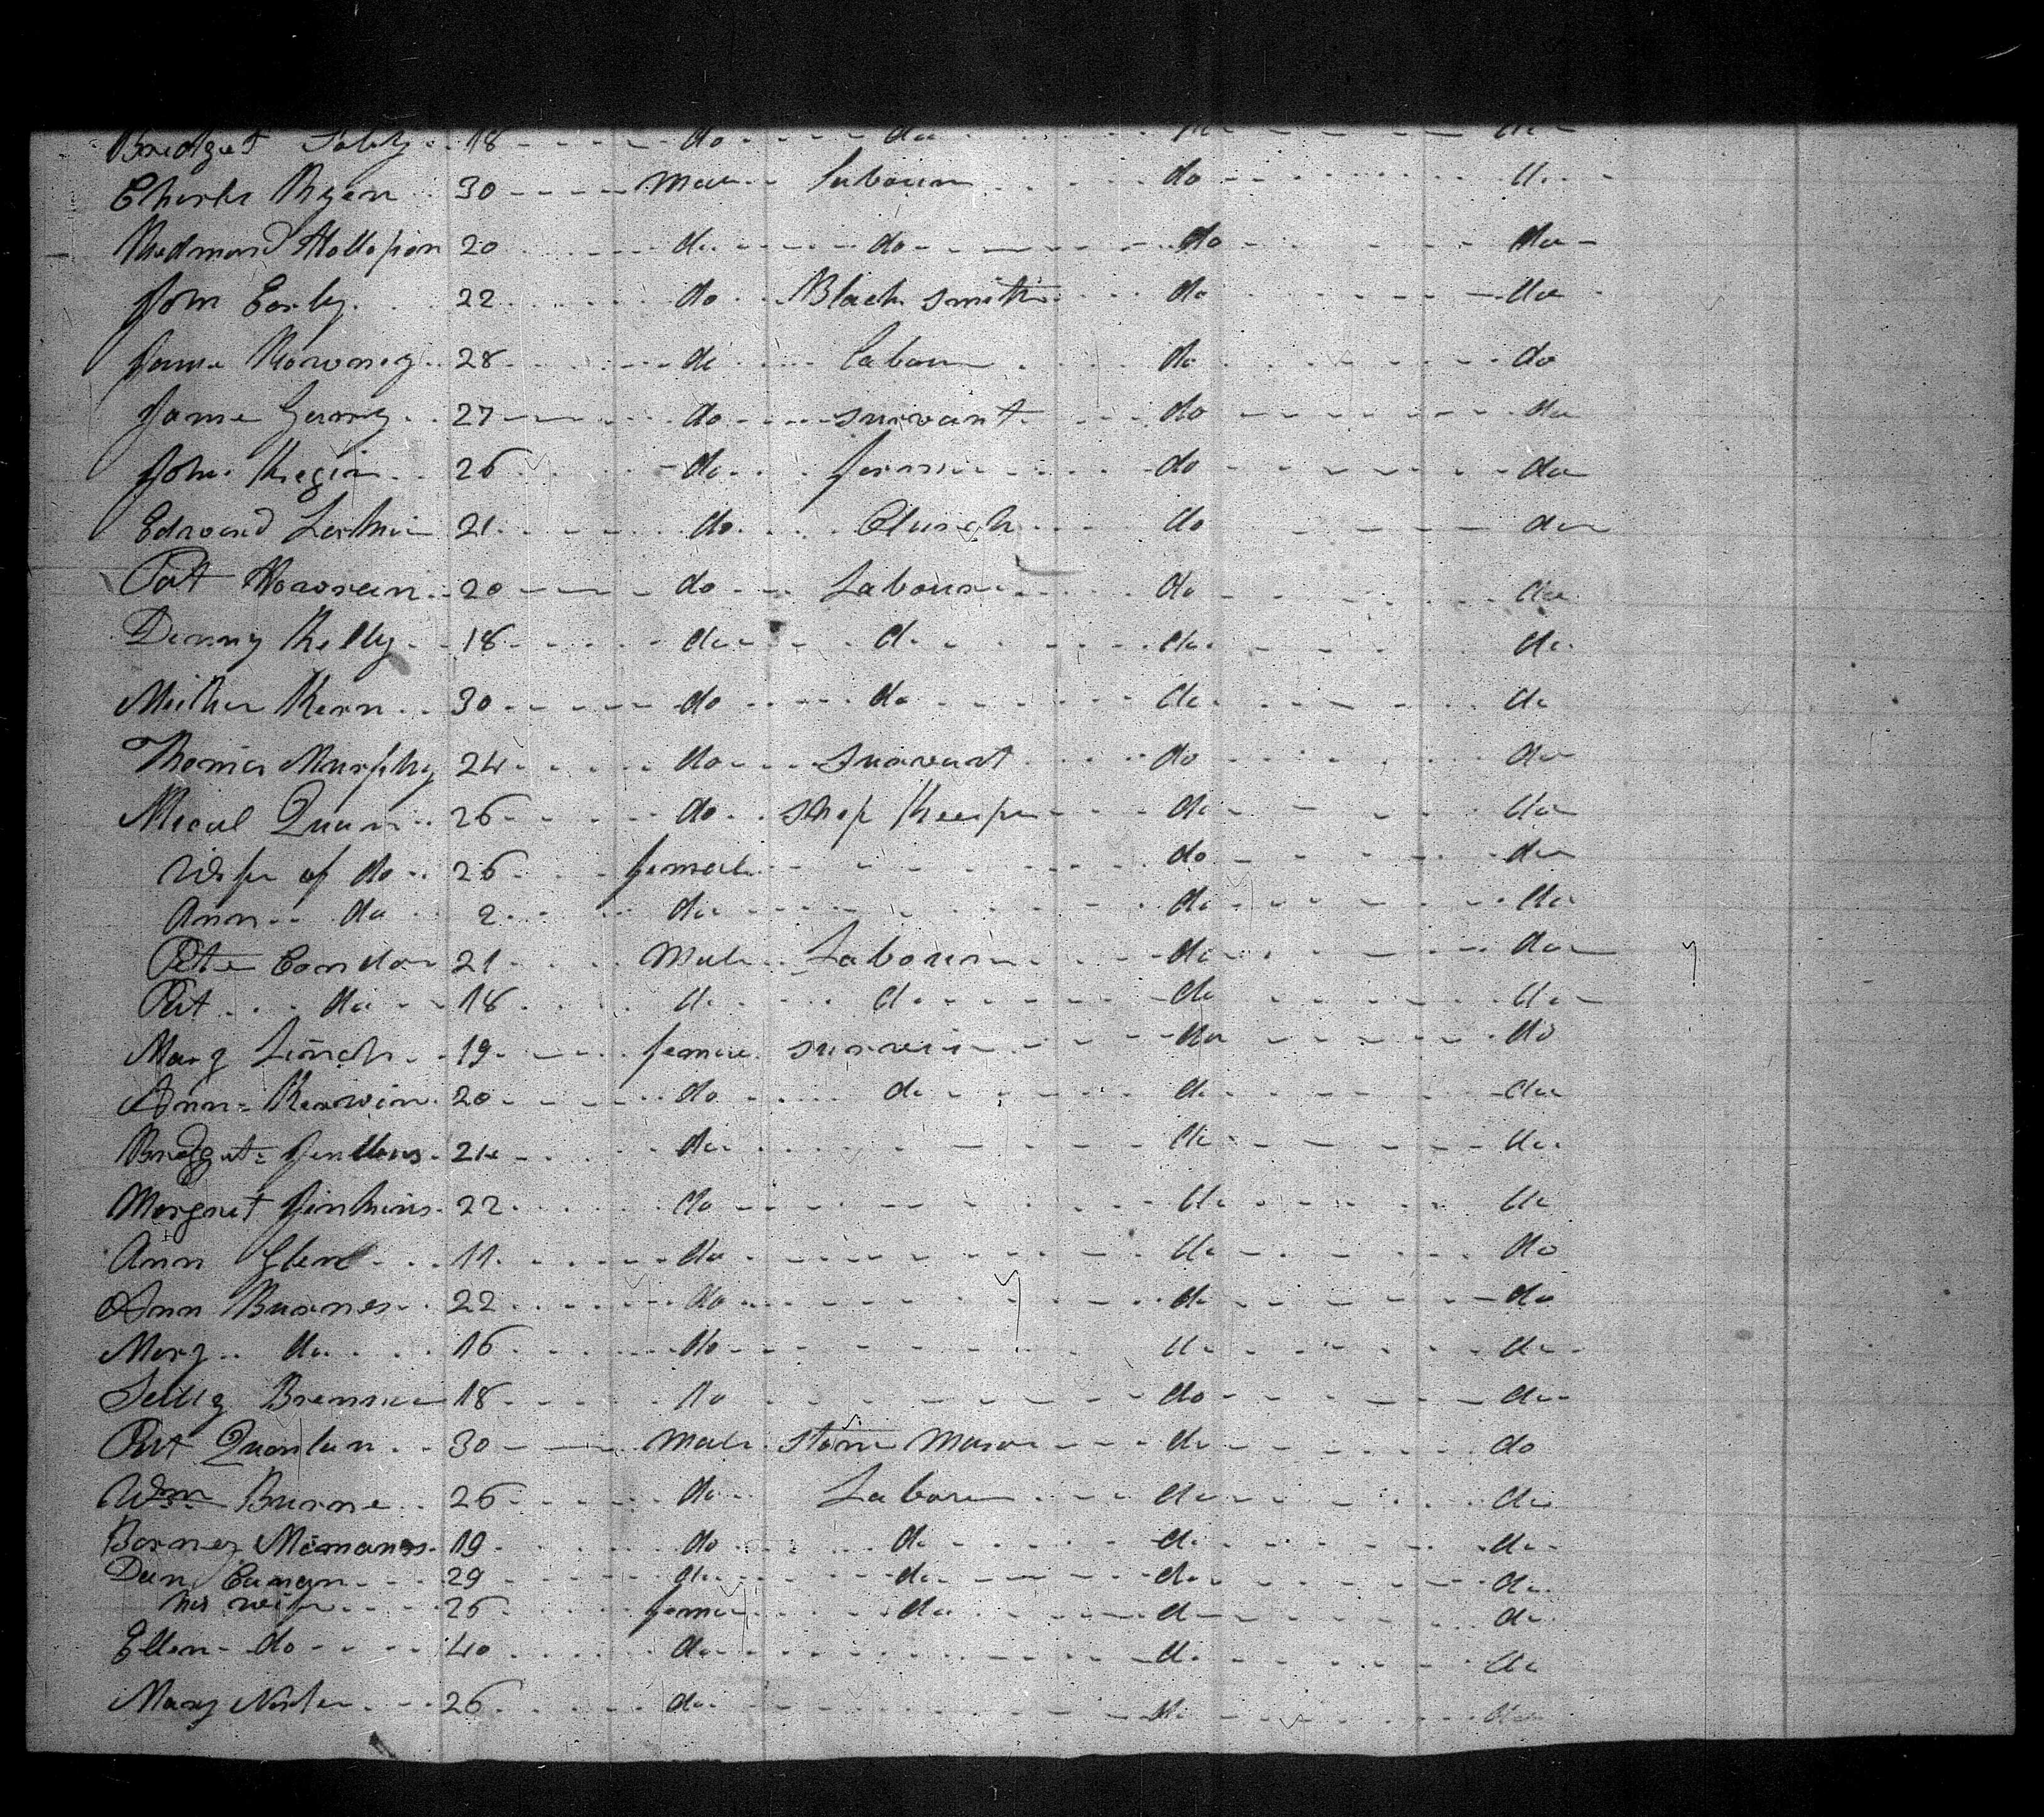 Bridget 18 do do do do
Charles Ryan 30 Male Labourer do do
Redmond 20 do do do do
John Early 22 do Black smith do do
James 28 do labour do do
James Garry 27 do survant do do
John Regin 26 do farmer do do
Edward 21 do do do
Pat 20 do Labourer do do
Denny Kelly 18 do do do do
Kern 30 do do do do
Thomas Murphy 24 do survant do do
Micul Quinn 26 do shop Keeper do do
Wife of do 26 female do do
Ann do 2 do do do
Peter Condon 21 Male Labourer do do
Pat do 18 do do do do
Mary Linch 19 female do do
Ann Kerwin 20 do do do do
Bridget 24 do do do
Margret Jinkins 22 do do do
Ann Glen 11 do do do
Ann Burnes 22 do do do
Mary do 16 do do do
Brennen 18 do do do
Pat Quonlan 30 Male stone Mason do do
Wm Burne 26 do Labour do do
Barney 19 do do do do
Dan 29 do do do do
his wife 26 female do do do
Ellen do 40 do do do
Mary 26 do do do